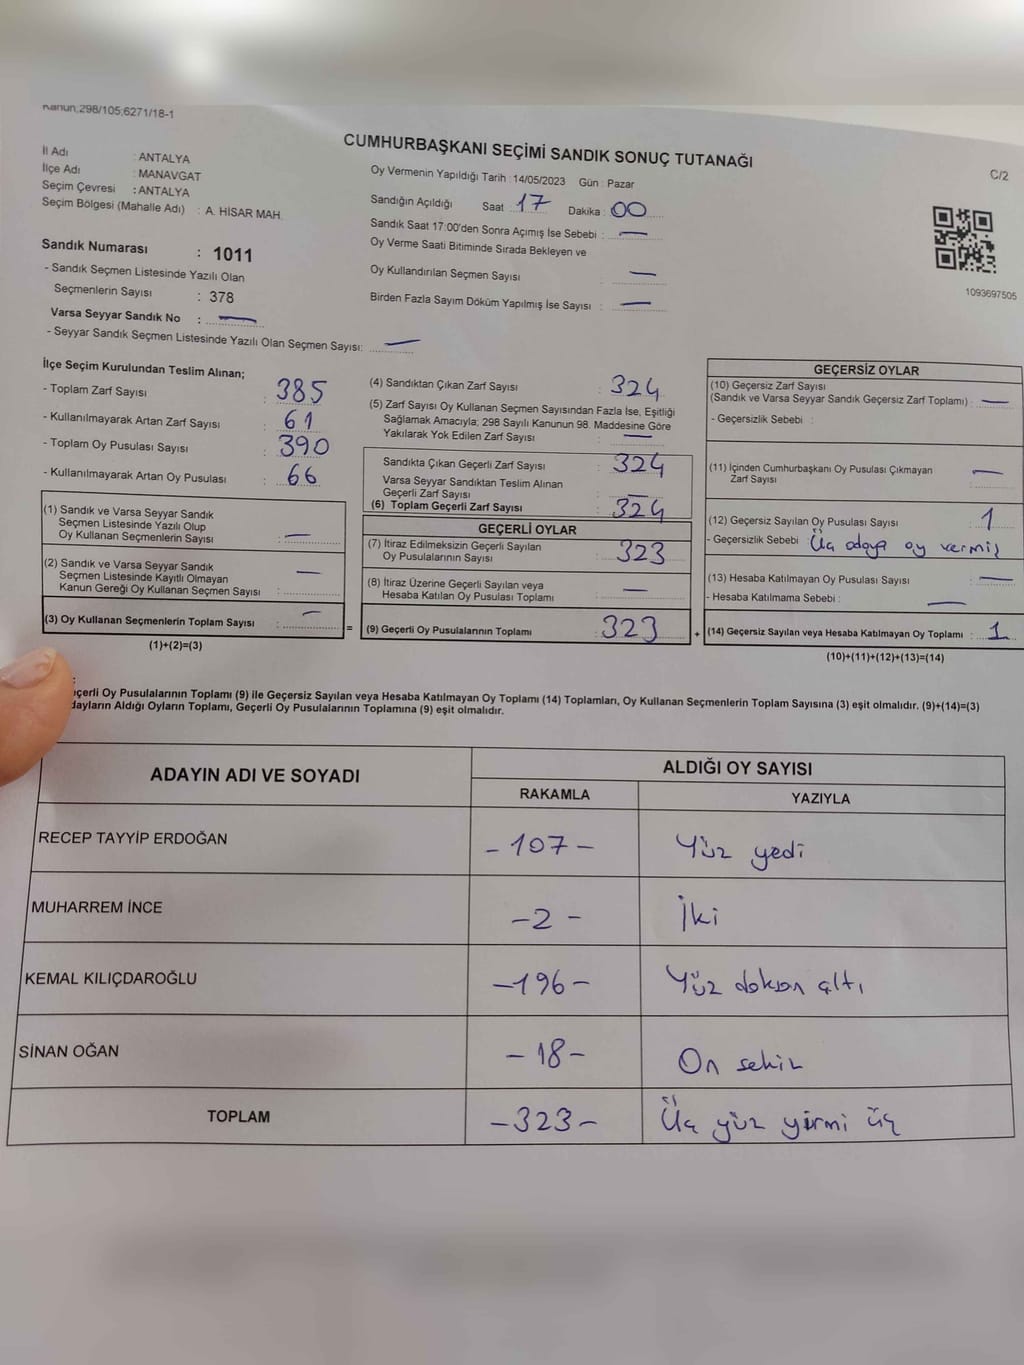 Kanun,298/105;6271/18-1
CUMHURBAŞKANI SEÇİMİ SANDIK SONUÇ TUTANAĞI
C/2
İl Adı : ANTALYA
İlçe Adı : MANAVGAT
Seçim Çevresi : ANTALYA
Seçim Bölgesi (Mahalle Adı) : A. HİSAR MAH.
Sandık Numarası : 1011
- Sandık Seçmen Listesinde Yazılı Olan
Seçmenlerin Sayısı : 378
Varsa Seyyar Sandık No : —
- Seyyar Sandık Seçmen Listesinde Yazılı Olan Seçmen Sayısı: —
Oy Vermenin Yapıldığı Tarih : 14/05/2023 Gün : Pazar
Sandığın Açıldığı Saat : 17 Dakika : 00
Sandık Saat 17:00'den Sonra Açımış İse Sebebi : —
Oy Verme Saati Bitiminde Sırada Bekleyen ve
Oy Kullandırılan Seçmen Sayısı —
Birden Fazla Sayım Döküm Yapılmış İse Sayısı : —
1093697505
İlçe Seçim Kurulundan Teslim Alınan;
- Toplam Zarf Sayısı : 385
- Kullanılmayarak Artan Zarf Sayısı : 61
- Toplam Oy Pusulası Sayısı : 390
- Kullanılmayarak Artan Oy Pusulası : 66
(1) Sandık ve Varsa Seyyar Sandık
Seçmen Listesinde Yazılı Olup
Oy Kullanan Seçmenlerin Sayısı : —
(2) Sandık ve Varsa Seyyar Sandık
Seçmen Listesinde Kayıtlı Olmayan
Kanun Gereği Oy Kullanan Seçmen Sayısı : —
(3) Oy Kullanan Seçmenlerin Toplam Sayısı : —
(1)+(2)=(3)
=
(4) Sandıktan Çıkan Zarf Sayısı : 324
(5) Zarf Sayısı Oy Kullanan Seçmen Sayısından Fazla İse, Eşitliği
Sağlamak Amacıyla; 298 Sayılı Kanunun 98. Maddesine Göre
Yakılarak Yok Edilen Zarf Sayısı : —
Sandıkta Çıkan Geçerli Zarf Sayısı : 324
Varsa Seyyar Sandıktan Teslim Alınan
Geçerli Zarf Sayısı : —
(6) Toplam Geçerli Zarf Sayısı : 324
GEÇERLİ OYLAR
(7) İtiraz Edilmeksizin Geçerli Sayılan
Oy Pusulalarının Sayısı : 323
(8) İtiraz Üzerine Geçerli Sayılan veya
Hesaba Katılan Oy Pusulası Toplamı : —
(9) Geçerli Oy Pusulalarının Toplamı : 323
+
GEÇERSİZ OYLAR
(10) Geçersiz Zarf Sayısı
(Sandık ve Varsa Seyyar Sandık Geçersiz Zarf Toplamı) : —
- Geçersizlik Sebebi :
(11) İçinden Cumhurbaşkanı Oy Pusulası Çıkmayan
Zarf Sayısı : —
(12) Geçersiz Sayılan Oy Pusulası Sayısı : 1
- Geçersizlik Sebebi : Üç adaya oy vermiş
(13) Hesaba Katılmayan Oy Pusulası Sayısı : —
- Hesaba Katılmama Sebebi : —
(14) Geçersiz Sayılan veya Hesaba Katılmayan Oy Toplamı : 1
(10)+(11)+(12)+(13)=(14)
Oy Pusulalarının Toplamı (9) ile Geçersiz Sayılan veya Hesaba Katılmayan Oy Toplamı (14) Toplamları, Oy Kullanan Seçmenlerin Toplam Sayısına (3) eşit olmalıdır. (9)+(14)=(3)
Aldığı Oyların Toplamı, Geçerli Oy Pusulalarının Toplamına (9) eşit olmalıdır.
ADAYIN ADI VE SOYADI ALDIĞI OY SAYISI
RAKAMLA YAZIYLA
RECEP TAYYİP ERDOĞAN - 107 - Yüz yedi
MUHARREM İNCE - 2 - İki
KEMAL KILIÇDAROĞLU - 196 - Yüz doksan altı
SİNAN OĞAN - 18 - On sekiz
TOPLAM - 323 - Üç yüz yirmi üç